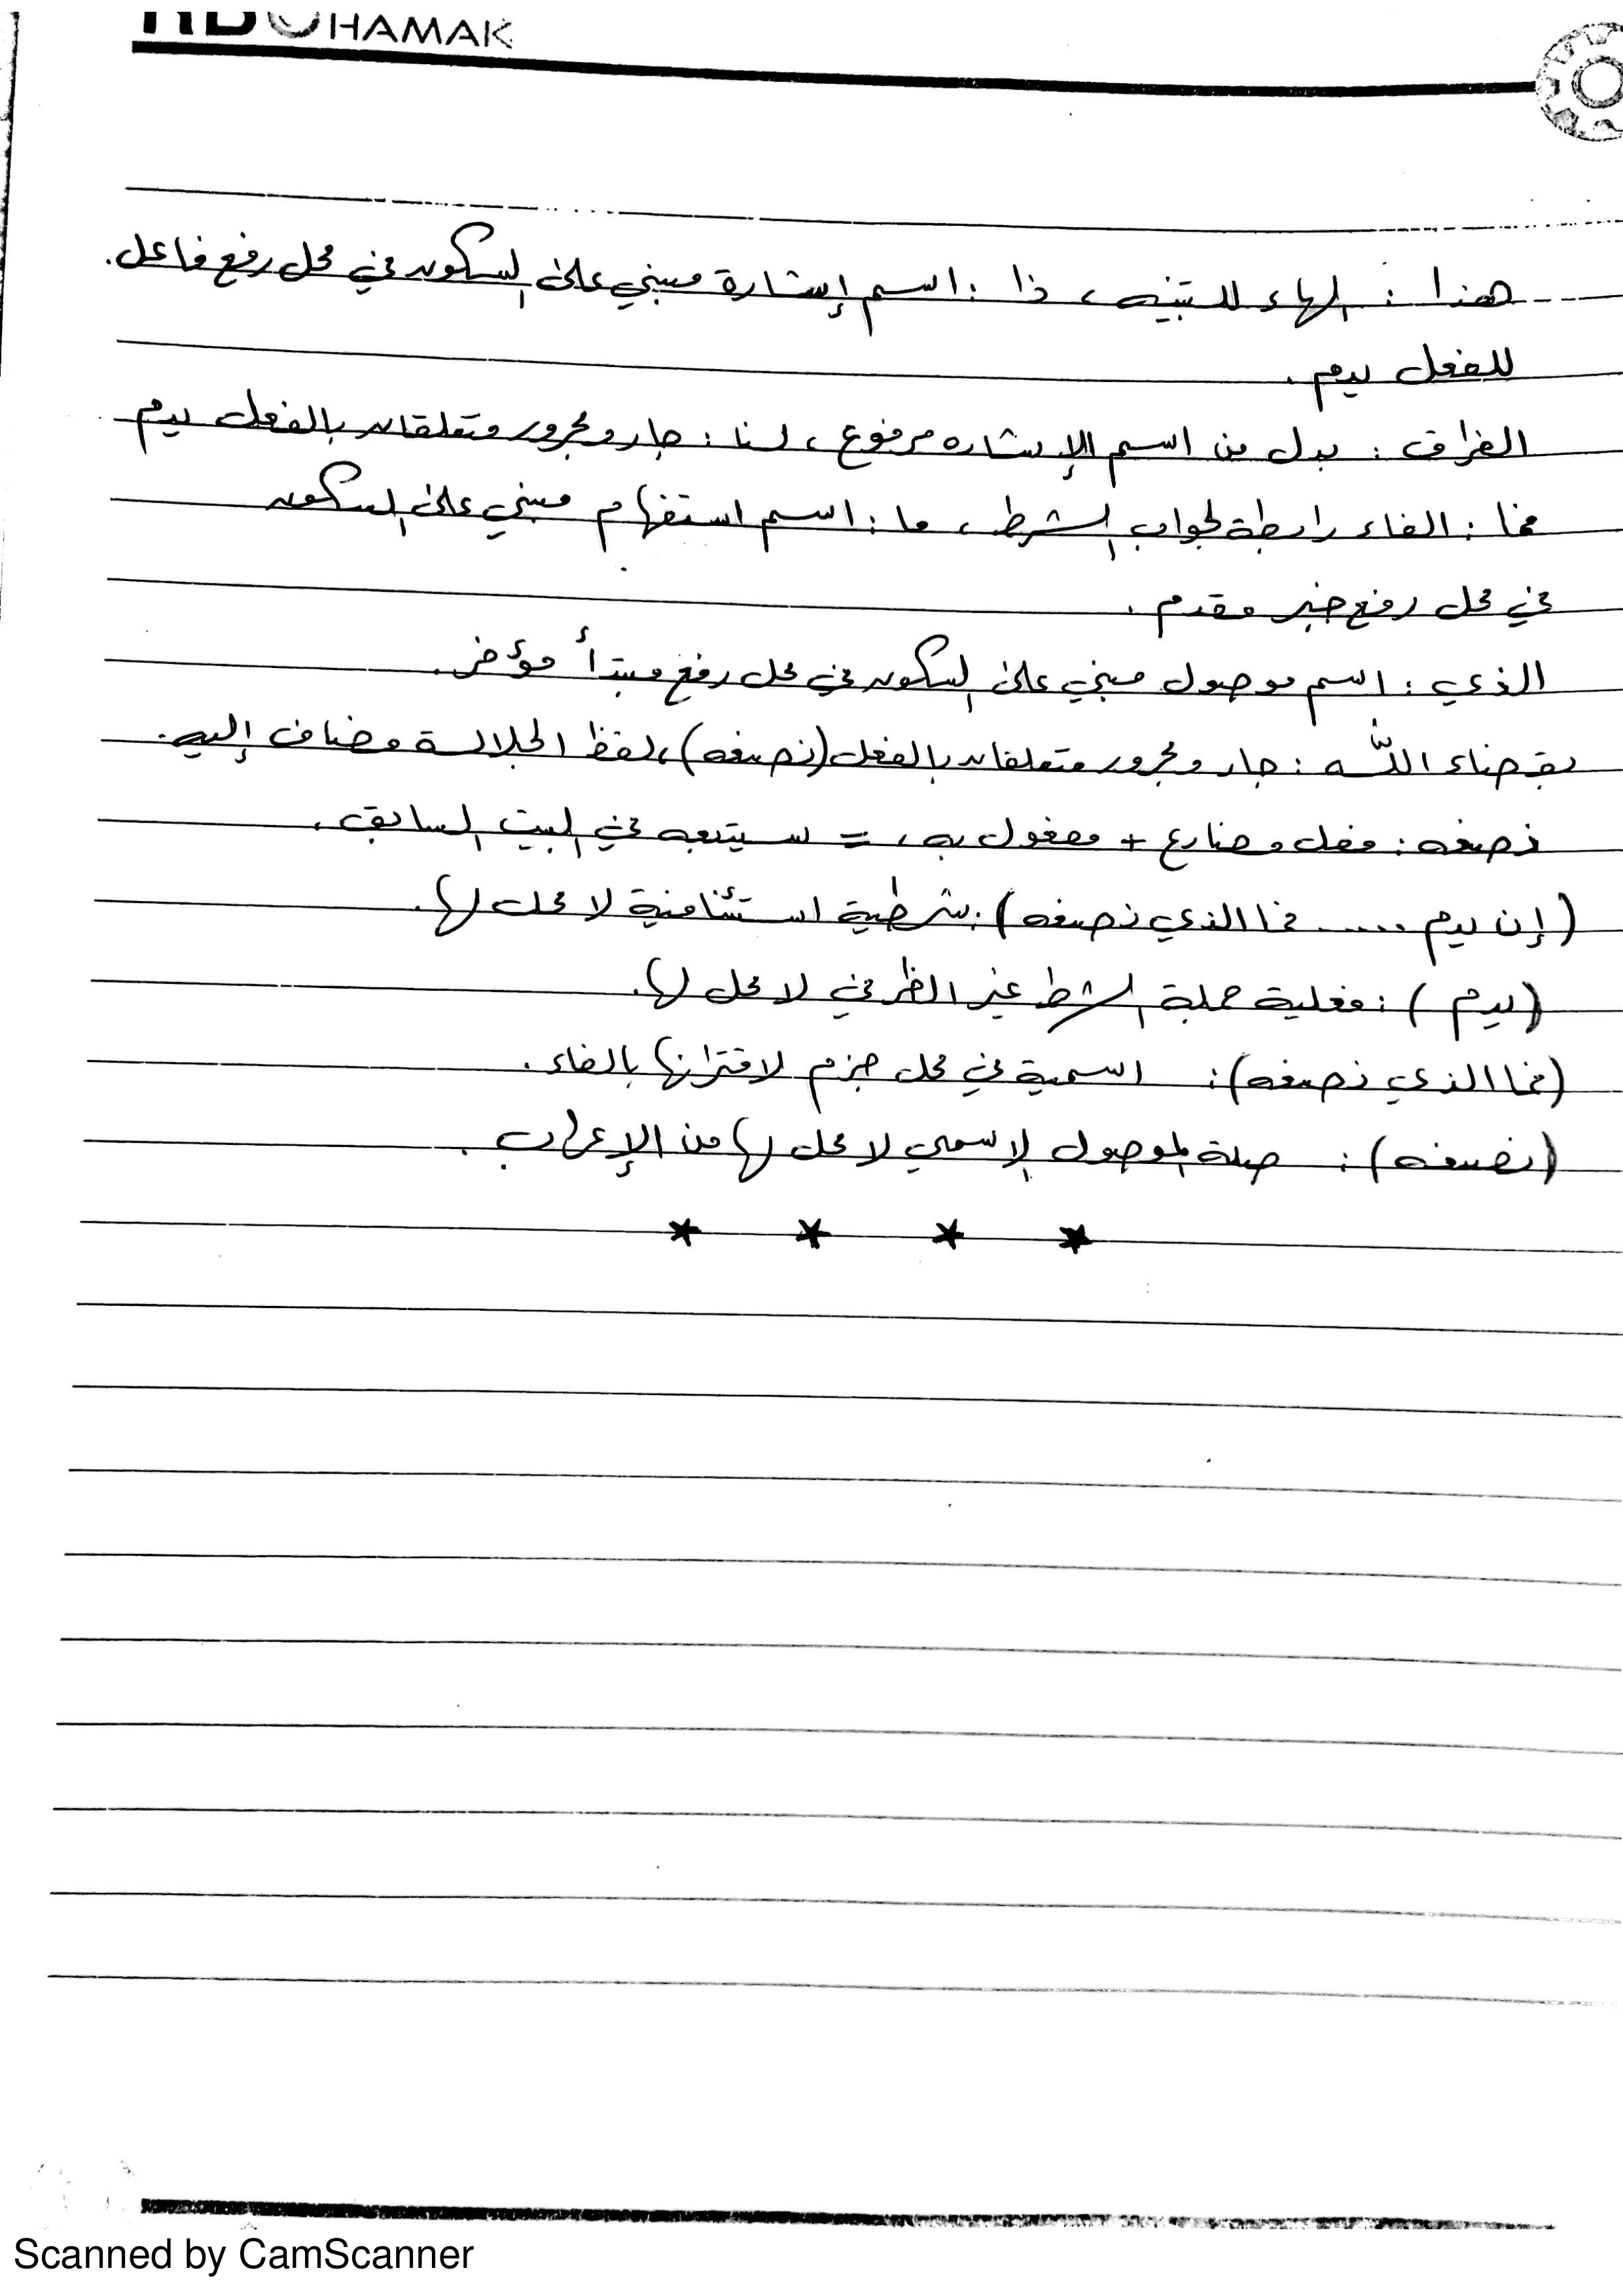 HAMAK
هذا : الهاء للتنبيه ، ذا : اسم إشارة مبني على السكون في محل رفع فاعل .
للفعل يدم .
الفراق : بدل من اسم الإشاره مرفوع ، لنا : جار ومجرور متعلقان بالفعل يدم
فما : الفاء رابطة لجواب الشرط ، ما : اسم استفهام مبني على السكون
في محل رفع خبر مقدم .
الذي : اسم موصول مبني على السكون في محل رفع مبتدأ مؤخر .
بقضاء الله : جار ومجرور متعلقان بالفعل (نصنعه) ، لفظ الجلالة مضاف إليه .
نصنعه : فعل مضارع + مفعول به ، = سيتبعه في البيت السابق .
(إن يدم ..... فما الذي نصنعه) : شرطية استئنافية لا محل لها .
(يدم) : فعلية جملة الشرط غير الظرفي لا محل لها .
(فما الذي نصنعه) : اسمية في محل جزم لاقترانها بالفاء .
(نصنعه) : صلة الموصول الاسمي لا محل لها من الإعراب .
* * * *
Scanned by CamScanner